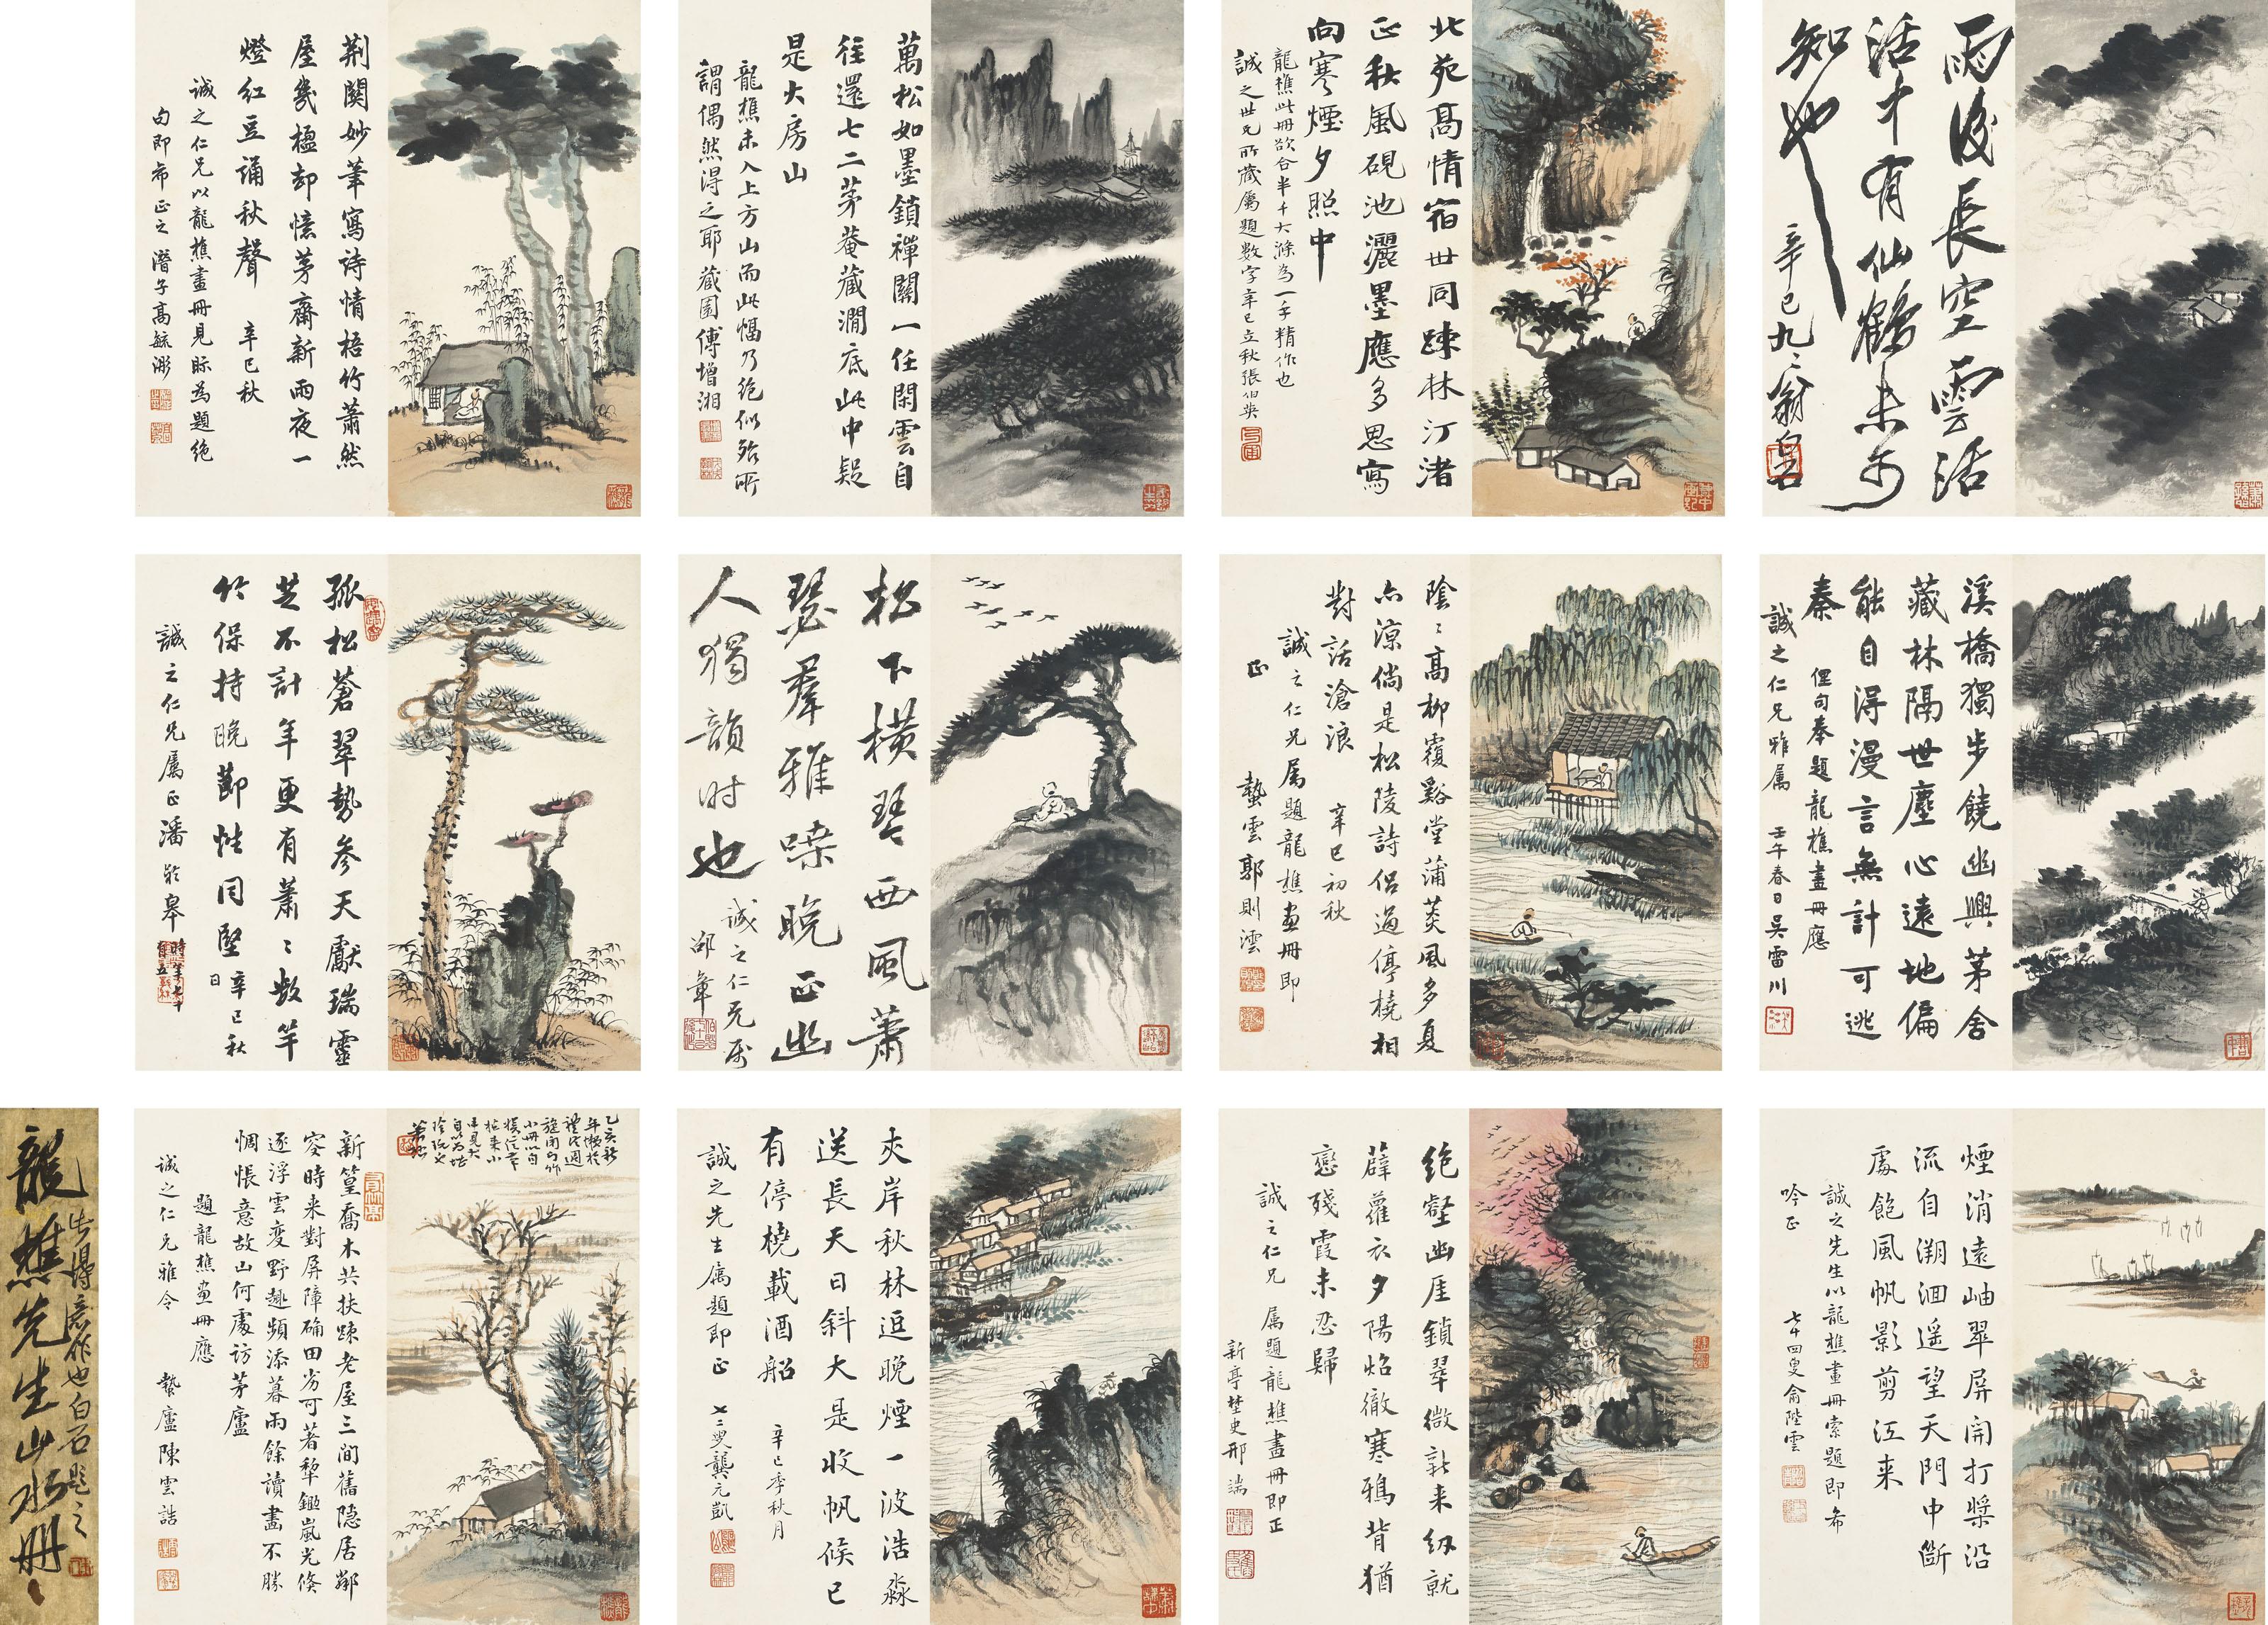 雨後長空雲活
活才有仙鶴未必
知也
辛巳九二翁白石
北苑高情宿世同疎林汀渚
正秋風硯池灑墨應多思寫
向寒煙夕照中
龍樵此冊欲合半千大滌為一手精作也
誠之世兄所藏屬題數字辛巳立秋張伯英
萬松如墨鎖禪關一任閑雲自
往還七二茅菴藏澗底此中疑
是大房山
龍樵未入上方山而此幅乃絕似殆所
謂偶然得之耶藏園傅增湘
荆關妙筆寫詩情梧竹蕭然
屋幾楹却憶茅齋新雨夜一
燈紅豆誦秋聲 辛巳秋
誠之仁兄以龍樵畫冊見眎為題絕
句即希正之 潛子高毓浵
溪橋獨步饒幽興茅舍
藏林隔世塵心遠地偏
能自得漫言無計可逃
秦
俚句奉題龍樵畫冊應
誠之仁兄雅属 壬午春日吴雷川
陰〻高柳覆谿堂蒲葵風多夏
亦涼倘是松陵詩侣過停橈相
對話滄浪 辛巳初秋
誠之仁兄属題龍樵畫冊即
正 蟄雲郭則澐
松下橫琴西風蕭
瑟羣雅噪晚正幽
人獨韻时也
誠之仁兄属
邵章
孤松蒼翠勢參天獻瑞靈
芝不計年更有蕭〻數竿
竹保持晚節性同堅 辛巳秋
日
誠之仁兄属正潘龄皋
時年七十
有五
煙消遠岫翠屏開打槳沿
流自溯洄遥望天門中斷
處飽風帆影剪江来
誠之先生以龍樵畫冊索題即希
吟正 七十四叟俞陛雲
絶壑幽厓鎖翠微新来紉就
薜蘿衣夕陽焰徹寒鴉背猶
戀殘霞未忍歸
誠之仁兄 属題龍樵畫冊即正
新亭埜史邢端
夾岸秋林逗晚煙一波浩淼
送長天日斜大是收帆候已
有停橈載酒船 辛巳季秋月
誠之先生属題即正 七二叟龔元凱
乙亥新
小冊以自
蕭愻
新篁喬木共扶疎老屋三間舊隐居鄰
容時来對屏障确田劣可著犂鋤嵐光倏
逐浮雲变野趣頻添暮雨餘讀畫不勝
惆悵意故山何處访茅廬
題龍樵画冊應
誠之仁兄雅令 蟄廬陳雲誥
龍樵先生山水冊
此得意作也白石題之